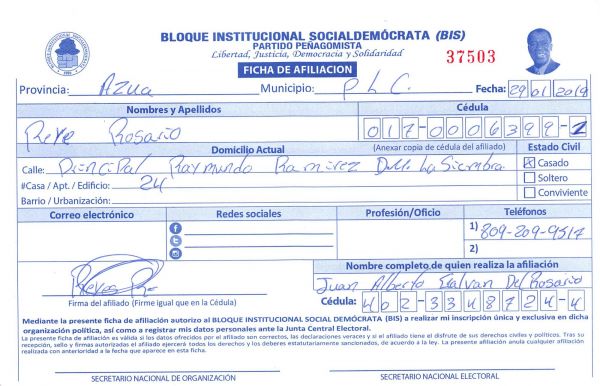 BLOQUE INSTITUCIONAL SOCIALDEMÓCRATA (BIS)
PARTIDO PEÑAGOMISTA
Libertad, Justicia, Democracia y Solidaridad
37503
FICHA DE AFILIACION
Provincia: Azua Municipio: P L C. Fecha: 29 01 2019
Nombres y Apellidos Cédula
Reye Rosario 017-0006399-2
Domicilio Actual (Anexar copia de cédula del afiliado) Estado Civil
Calle: Principal Raymundo Ramirez La Siembra Casado
#Casa / Apt. / Edificio: 24 Soltero
Barrio / Urbanización: Conviviente
Correo electrónico Redes sociales Profesión/Oficio Teléfonos
1) 809-209-9517
2)
Nombre completo de quien realiza la afiliación
Juan Alberto Galvan Del Rosario
Firma del afiliado (Firme igual que en la Cédula) Cédula: 402-3348724-4
Mediante la presente ficha de afiliación autorizo al BLOQUE INSTITUCIONAL SOCIAL DEMÓCRATA (BIS) a realizar mi inscripción única y exclusiva en dicha
organización política, así como a registrar mis datos personales ante la Junta Central Electoral.
La presente ficha de afiliación es válida si los datos ofrecidos por el afiliado son correctos, las declaraciones veraces y si el titular tiene el disfrute de sus derechos civiles y políticos. Tras su
recepción, sello y firmas autorizadas el afiliado ejercerá todos los derechos y los deberes estatutariamente sancionados, de acuerdo a la ley. La presente afiliación anula cualquier afiliación
realizada con anterioridad a la fecha que aparece en esta ficha.
SECRETARIO NACIONAL DE ORGANIZACIÓN SECRETARIO NACIONAL ELECTORAL